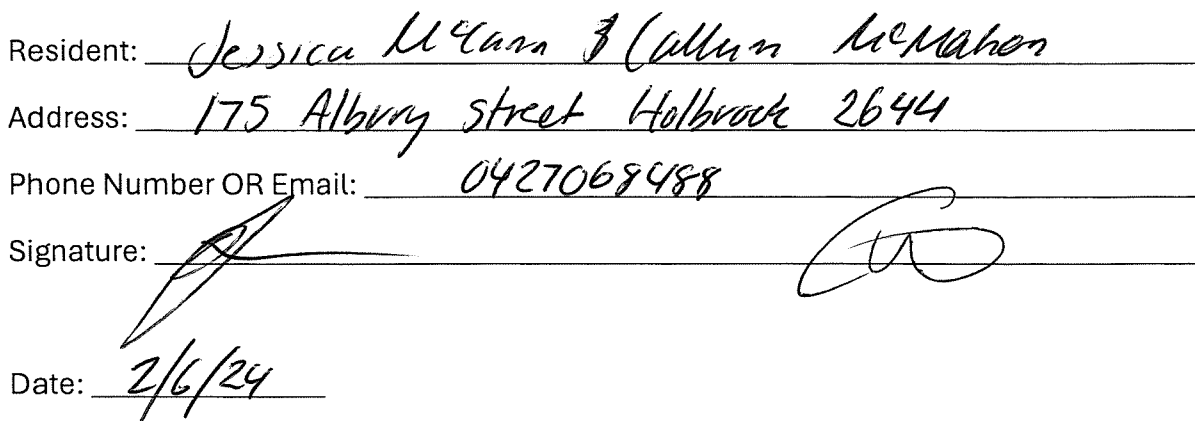 Resident: Jessica McCann & Callum McMahon
Address: 175 Albury street Holbrook 2644
Phone Number OR Email: 0427068488
Signature:
Date: 2/6/24